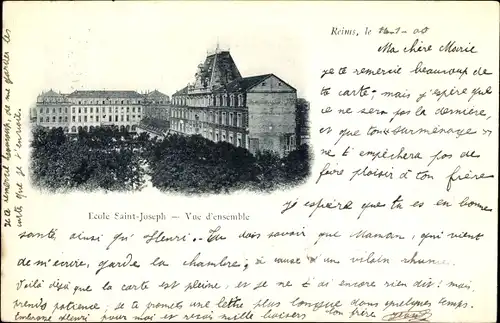 Reims, le 12-1-00
Ma chère Marie
je te remercie beaucoup de
ta carte, mais j'espère que
ce ne sera pas la dernière,
et que ton surménage
ne t'empêchera pas de
faire plaisir à ton frère
Ecole Saint-Joseph — Vue d'ensemble
J'espère que tu es en bonne
santé, ainsi qu'Henri. Tu dois savoir que Maman, qui vient
de m'écrire, garde la chambre, à cause d'un vilain rhume.
Voilà déjà que la carte est pleine, et je ne t'ai encore rien dit; mais
prends patience; je te promets une lettre plus longue dans quelques temps.
Embrasse Henri pour moi et reçois mille baisers ton frère
je te remercie beaucoup, de me garder les